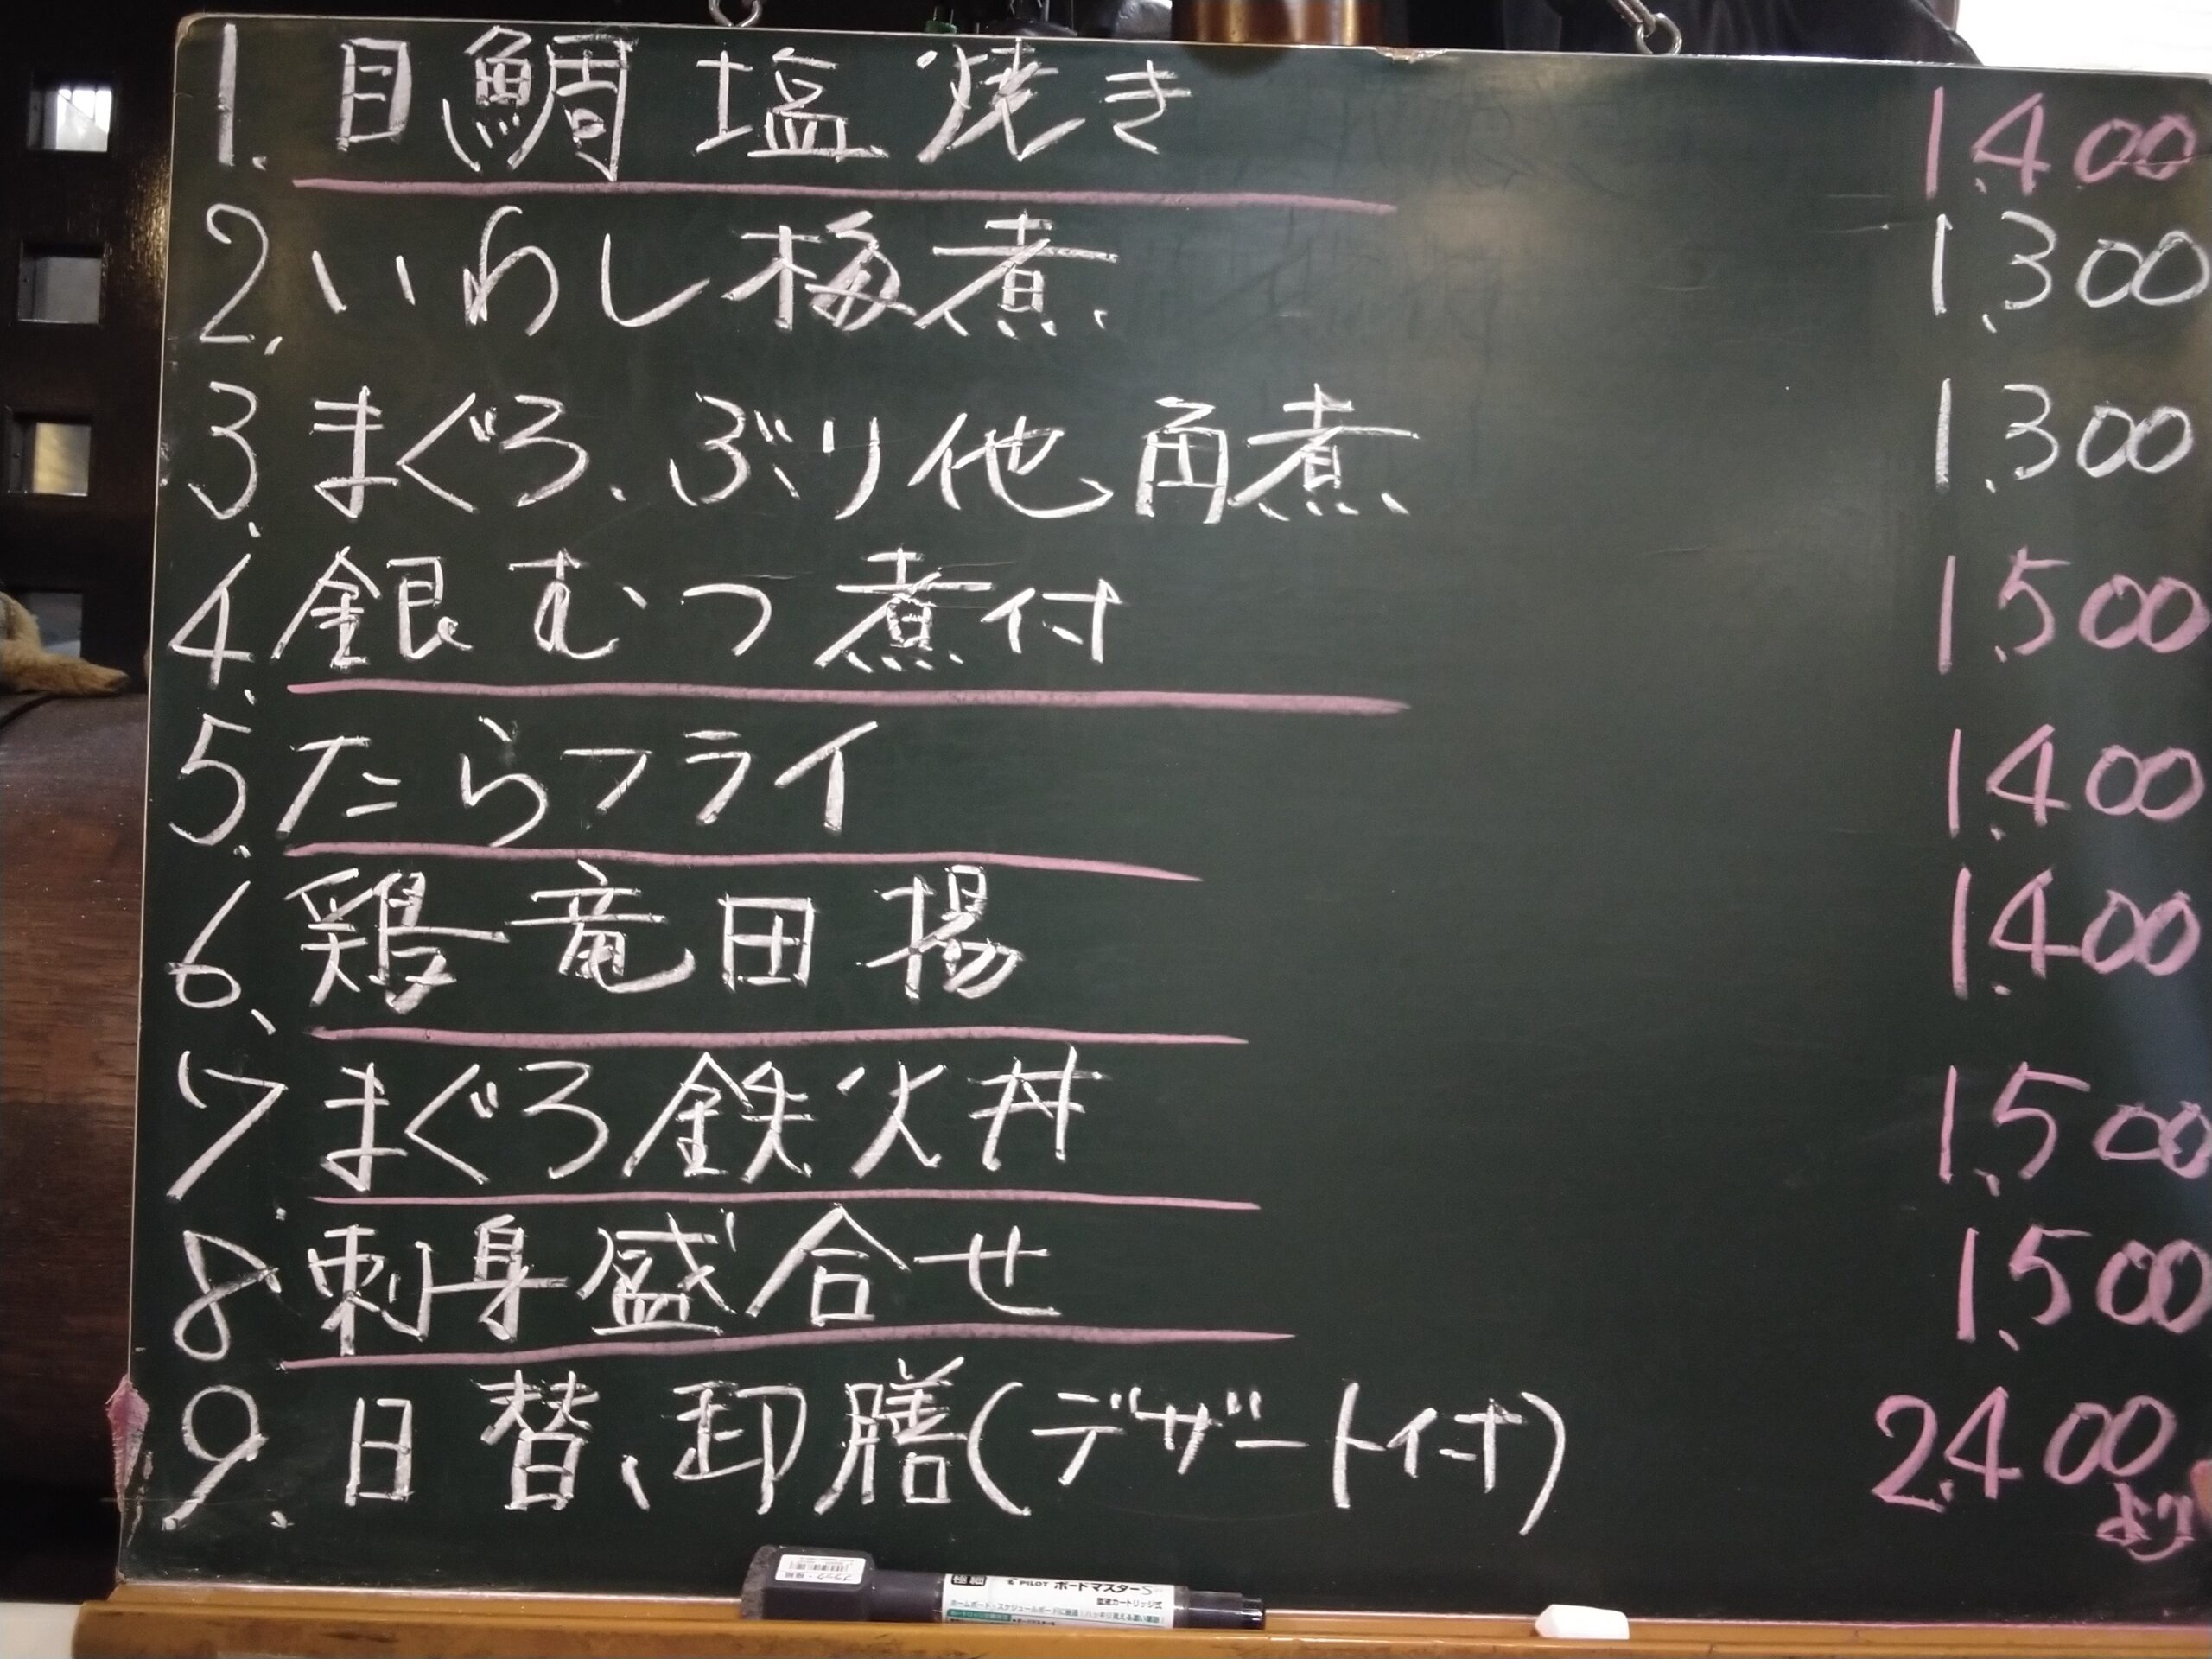 1. 目鯛塩焼き 1.400
2. いわし梅煮 1.300
3. まぐろ、ぶり他角煮 1.300
4. 銀むつ煮付 1.500
5. たらフライ 1.400
6. 鶏竜田揚 1.400
7. まぐろ鉄火丼 1.500
8. 刺身盛合せ 1.500
9. 日替、卸膳(デザート付) 2.400
より
PILOT ボードマスターS